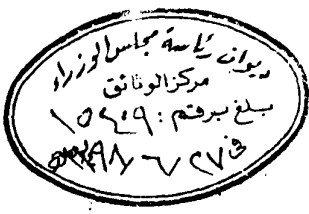 ديوان رئاسة مجلس الوزراء
مركز الوثائق
بلغ برقم :
في ٢٧ / ٦ /